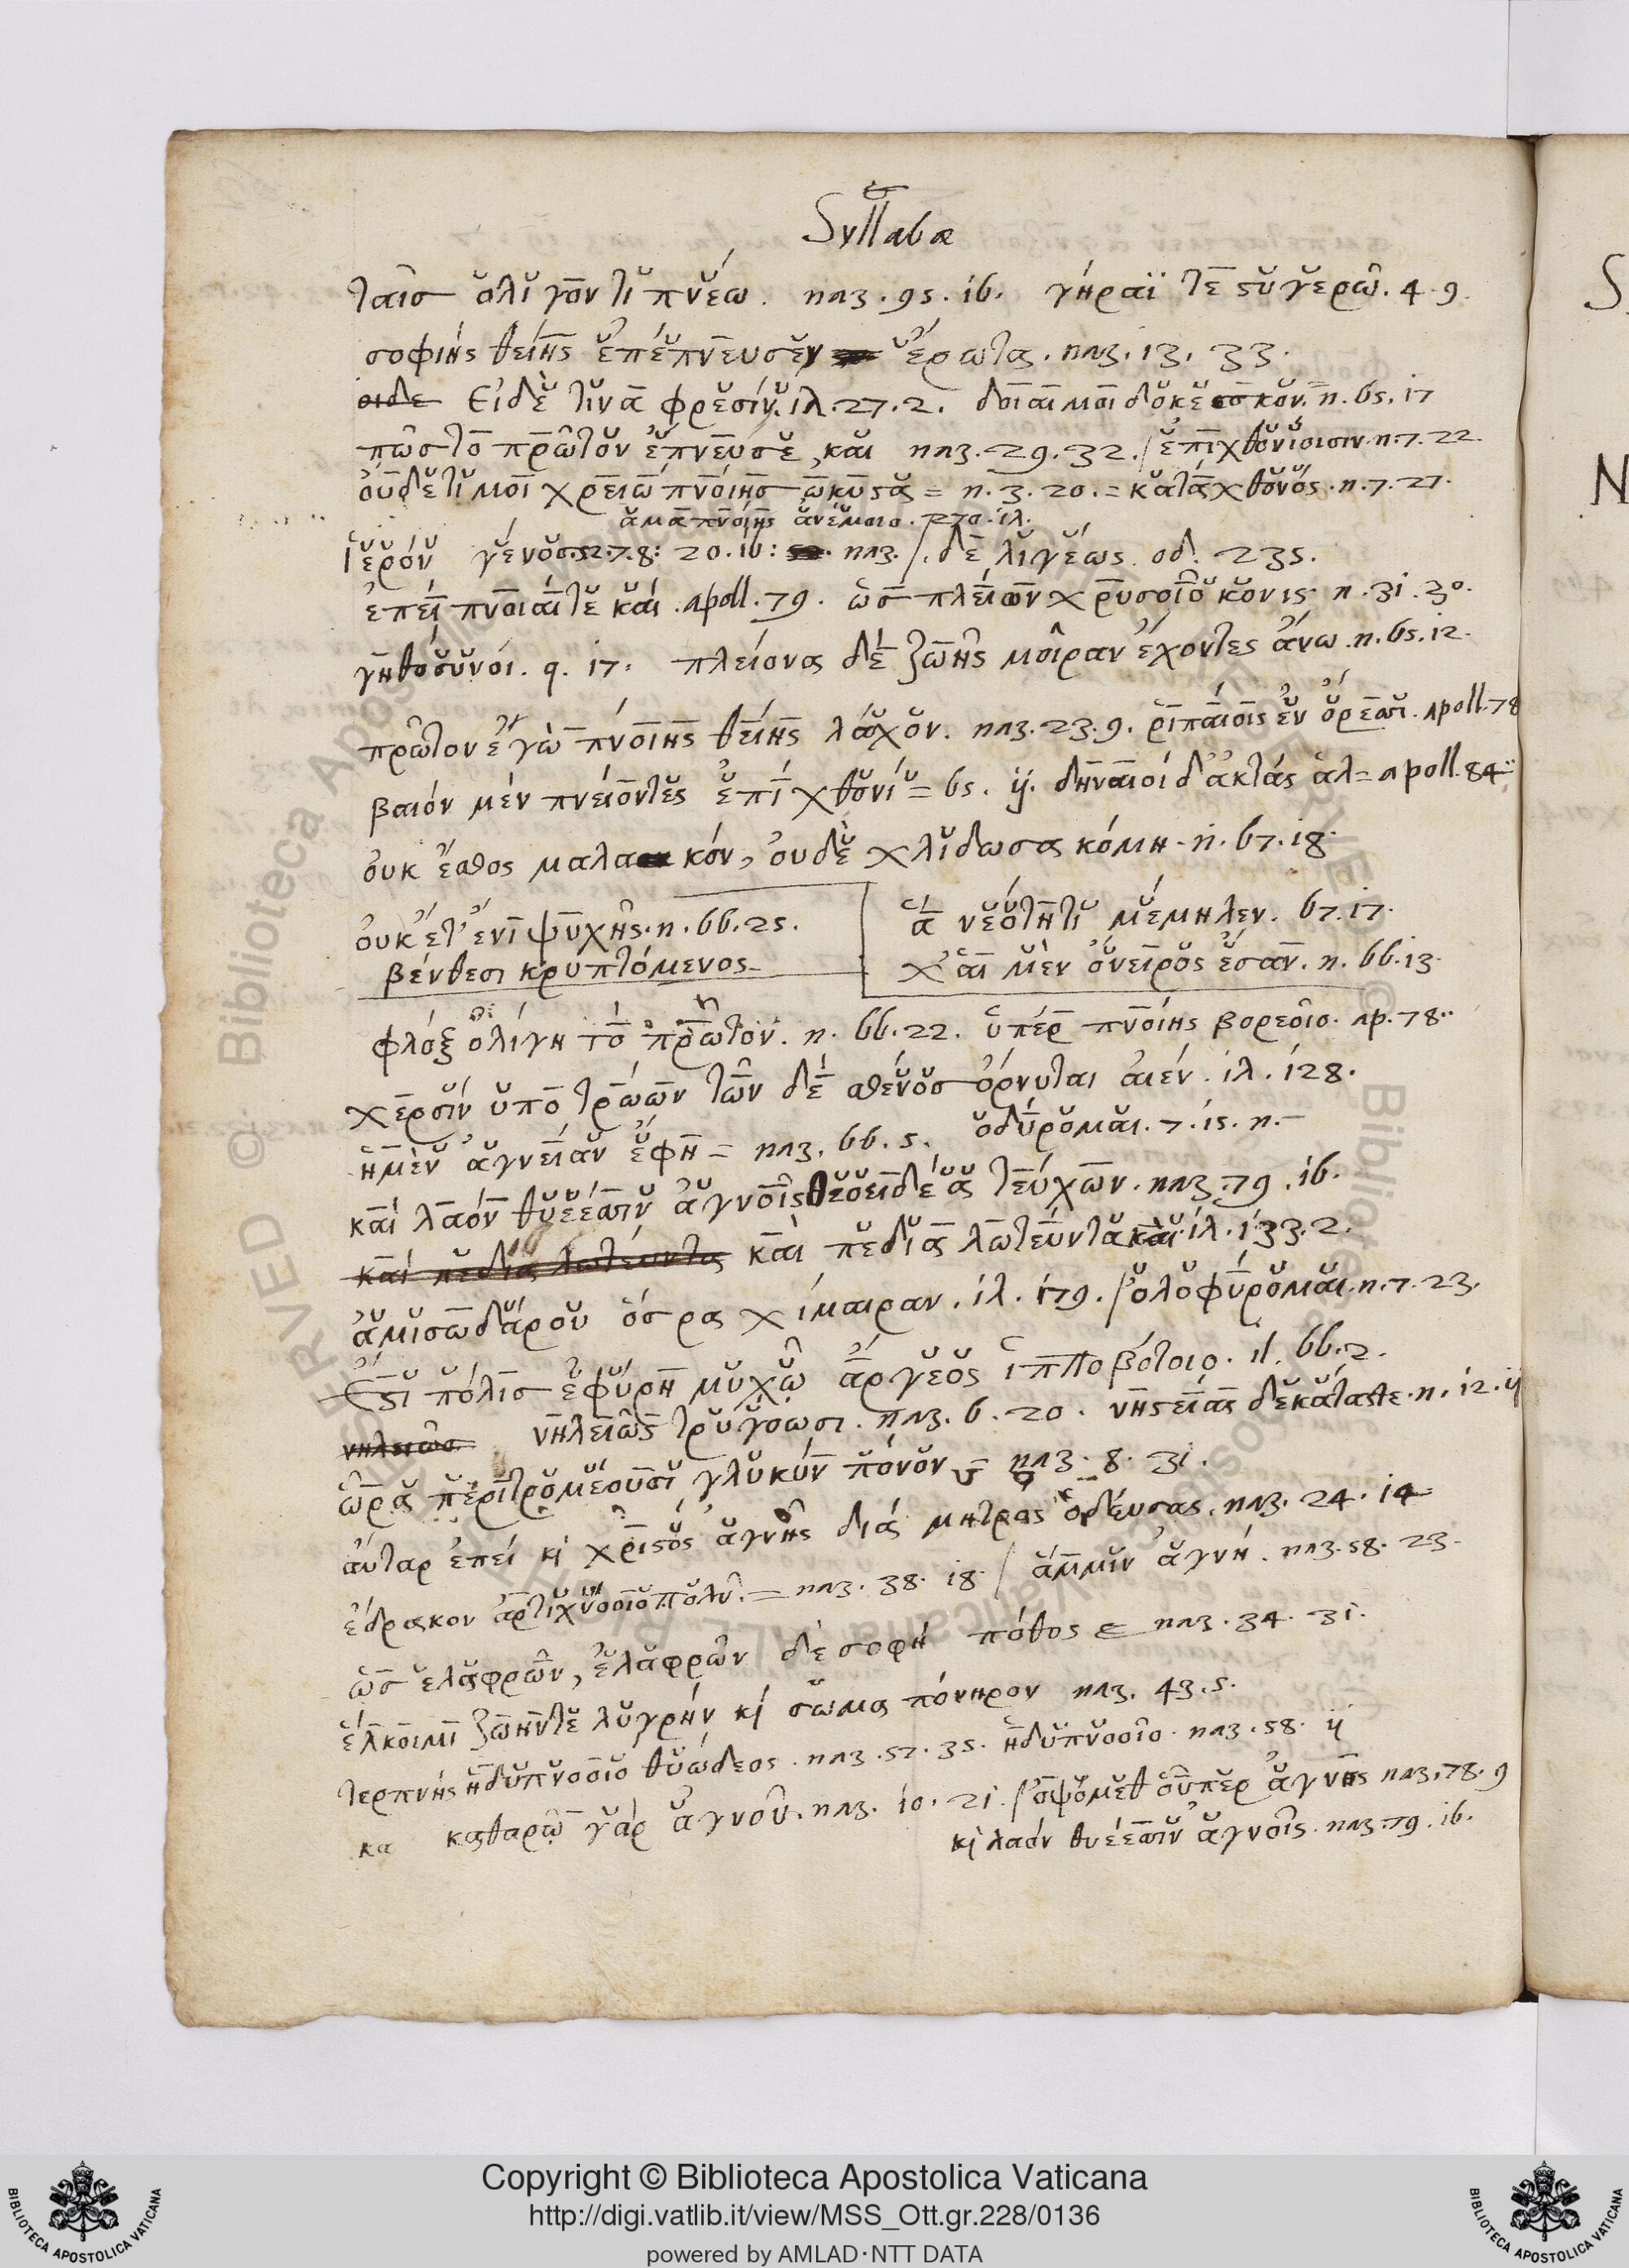 Syllabæ
ταῖσ ὀλίγον τι πνέω. ναζ. 95. 16. γήραϊ τε στυγερῷ. 4. 9.
σοφιής θείης ἐπέπνευσεν ἔρωτα. ναζ. 13. 33.
οιδε Εἰδὲ τινα φρεσίν. ιλ. 27. 2. δοιαι μοι δοκεεσκον. ν. 65. 17
πῶς το πρῶτον ἔπνευσε, και ναζ. 29. 32. / ἐπιχθονίοισιν. ν. 7. 22.
οὐδέ τι μοι χρειὼ πνοίης ὠκυς = ν. 3. 20. = κατά χθονός. ν. 7. 27.
ἅμα πνοίῃς ἀνέμοιο. 270. ιλ.
ἱερόν γένος. 52. 7. 8: 20. 16: ναζ. /. δὲ λιγέως. οδ. 235.
ἐπεί πνοιαί τε καί. apoll. 79. ὡς πλείων χρυσοῖο κόνις. ν. 31. 30.
γηθοσυνοι. 9. 17. πλείονα δέ ζωῆς μοῖραν ἔχοντες ἄνω. ν. 65. 12.
πρῶτον ἐγὼ πνοίης θείης λάχον. ναζ. 23. 9. ῥιπαίοις ἐν ὄρεσσι. apoll. 78
βαιόν μέν πνείοντες ἐπί χθονί = 65. ij. δηναιοί δ'ἀκτάς ἁλ = apoll. 84
οὐκ ἔαθος μαλακόν, οὐδὲ χλιδωσα κόμη. ν. 67. 18.
οὐκ ἔτ' ἐνι ψυχῆς. ν. 66. 25.
βένθεσι κρυπτόμενος
ἅ νεότητι μέμηλεν. 67. 17.
χ' αἱ μὲν ὄνειρος ἔσαν. ν. 66. 13.
φλόξ ὀλίγη τὸ πρῶτον. ν. 66. 22. ὑπέρ πνοίης βορέοιο. ap. 78.
χερσίν ὑπο τρώων τῶν δέ σθένος ὄρνυται αἰέν. ιλ. 128.
ἡμὲν ἁγνείαν ἔφη = ναζ. 66. 5. ὀδύρομαι. 7. 15. ν.
καί λαόν θυέεσσιν ἁγνοῖς θεοειδέα τεύχων. ναζ. 79. 16.
καί πεδία λωτεοντα και πεδία λωτεύντα και. ιλ. 133. 2.
ἀμισωδάρου ὅσ ρα χίμαιραν. ιλ. 179. / ὀλοφύρομαι. ν. 7. 23.
Ἔστι πόλις ἐφύρη μυχῷ ἄργεος ἱπποβότοιο. il. 66. 2.
νηλειῶσ νηλειῶς τρυγοωσι. ναζ. 6. 20. νηστείας δεκάτας τε. ν. 12. ij
ὥρας περιτρομέουσι γλυκύν πόνον = ναζ. 8. 31.
ἀυταρ ἐπεί κὶ χριστός ἁγνῆς διά μητρός ὁδευσας. ναζ. 24. 14
ἔδρακον ἀρτιχύοοιο πολυ. = ναζ. 38. 18. / ἄμμιν ἁγνή. ναζ. 58. 23.
ὡς ἐλαφρῶν, ἐλαφρῶν δὲ σοφή πόθος ε ναζ. 34. 31.
ἕλκοιμι ζωήν τε λυγρήν κὶ σωμα πόνηρον ναζ. 43. 5.
τερπνής ἡδυπνοοιο θυώδεος. ναζ. 57. 35. ἡδυπνοοῖο. ναζ. 58. ij
κα καθαρῷ γάρ ἁγνοῦ. ναζ. 10. 21. / ὀψόμεθ οὗπερ ἁγνης ναζ. 78. 9
κὶ λαόν θυέεσσιν ἁγνοῖς. ναζ. 79. 16.
Copyright © Biblioteca Apostolica Vaticana
http://digi.vatlib.it/view/MSS_Ott.gr.228/0136
powered by AMLAD·NTT DATA